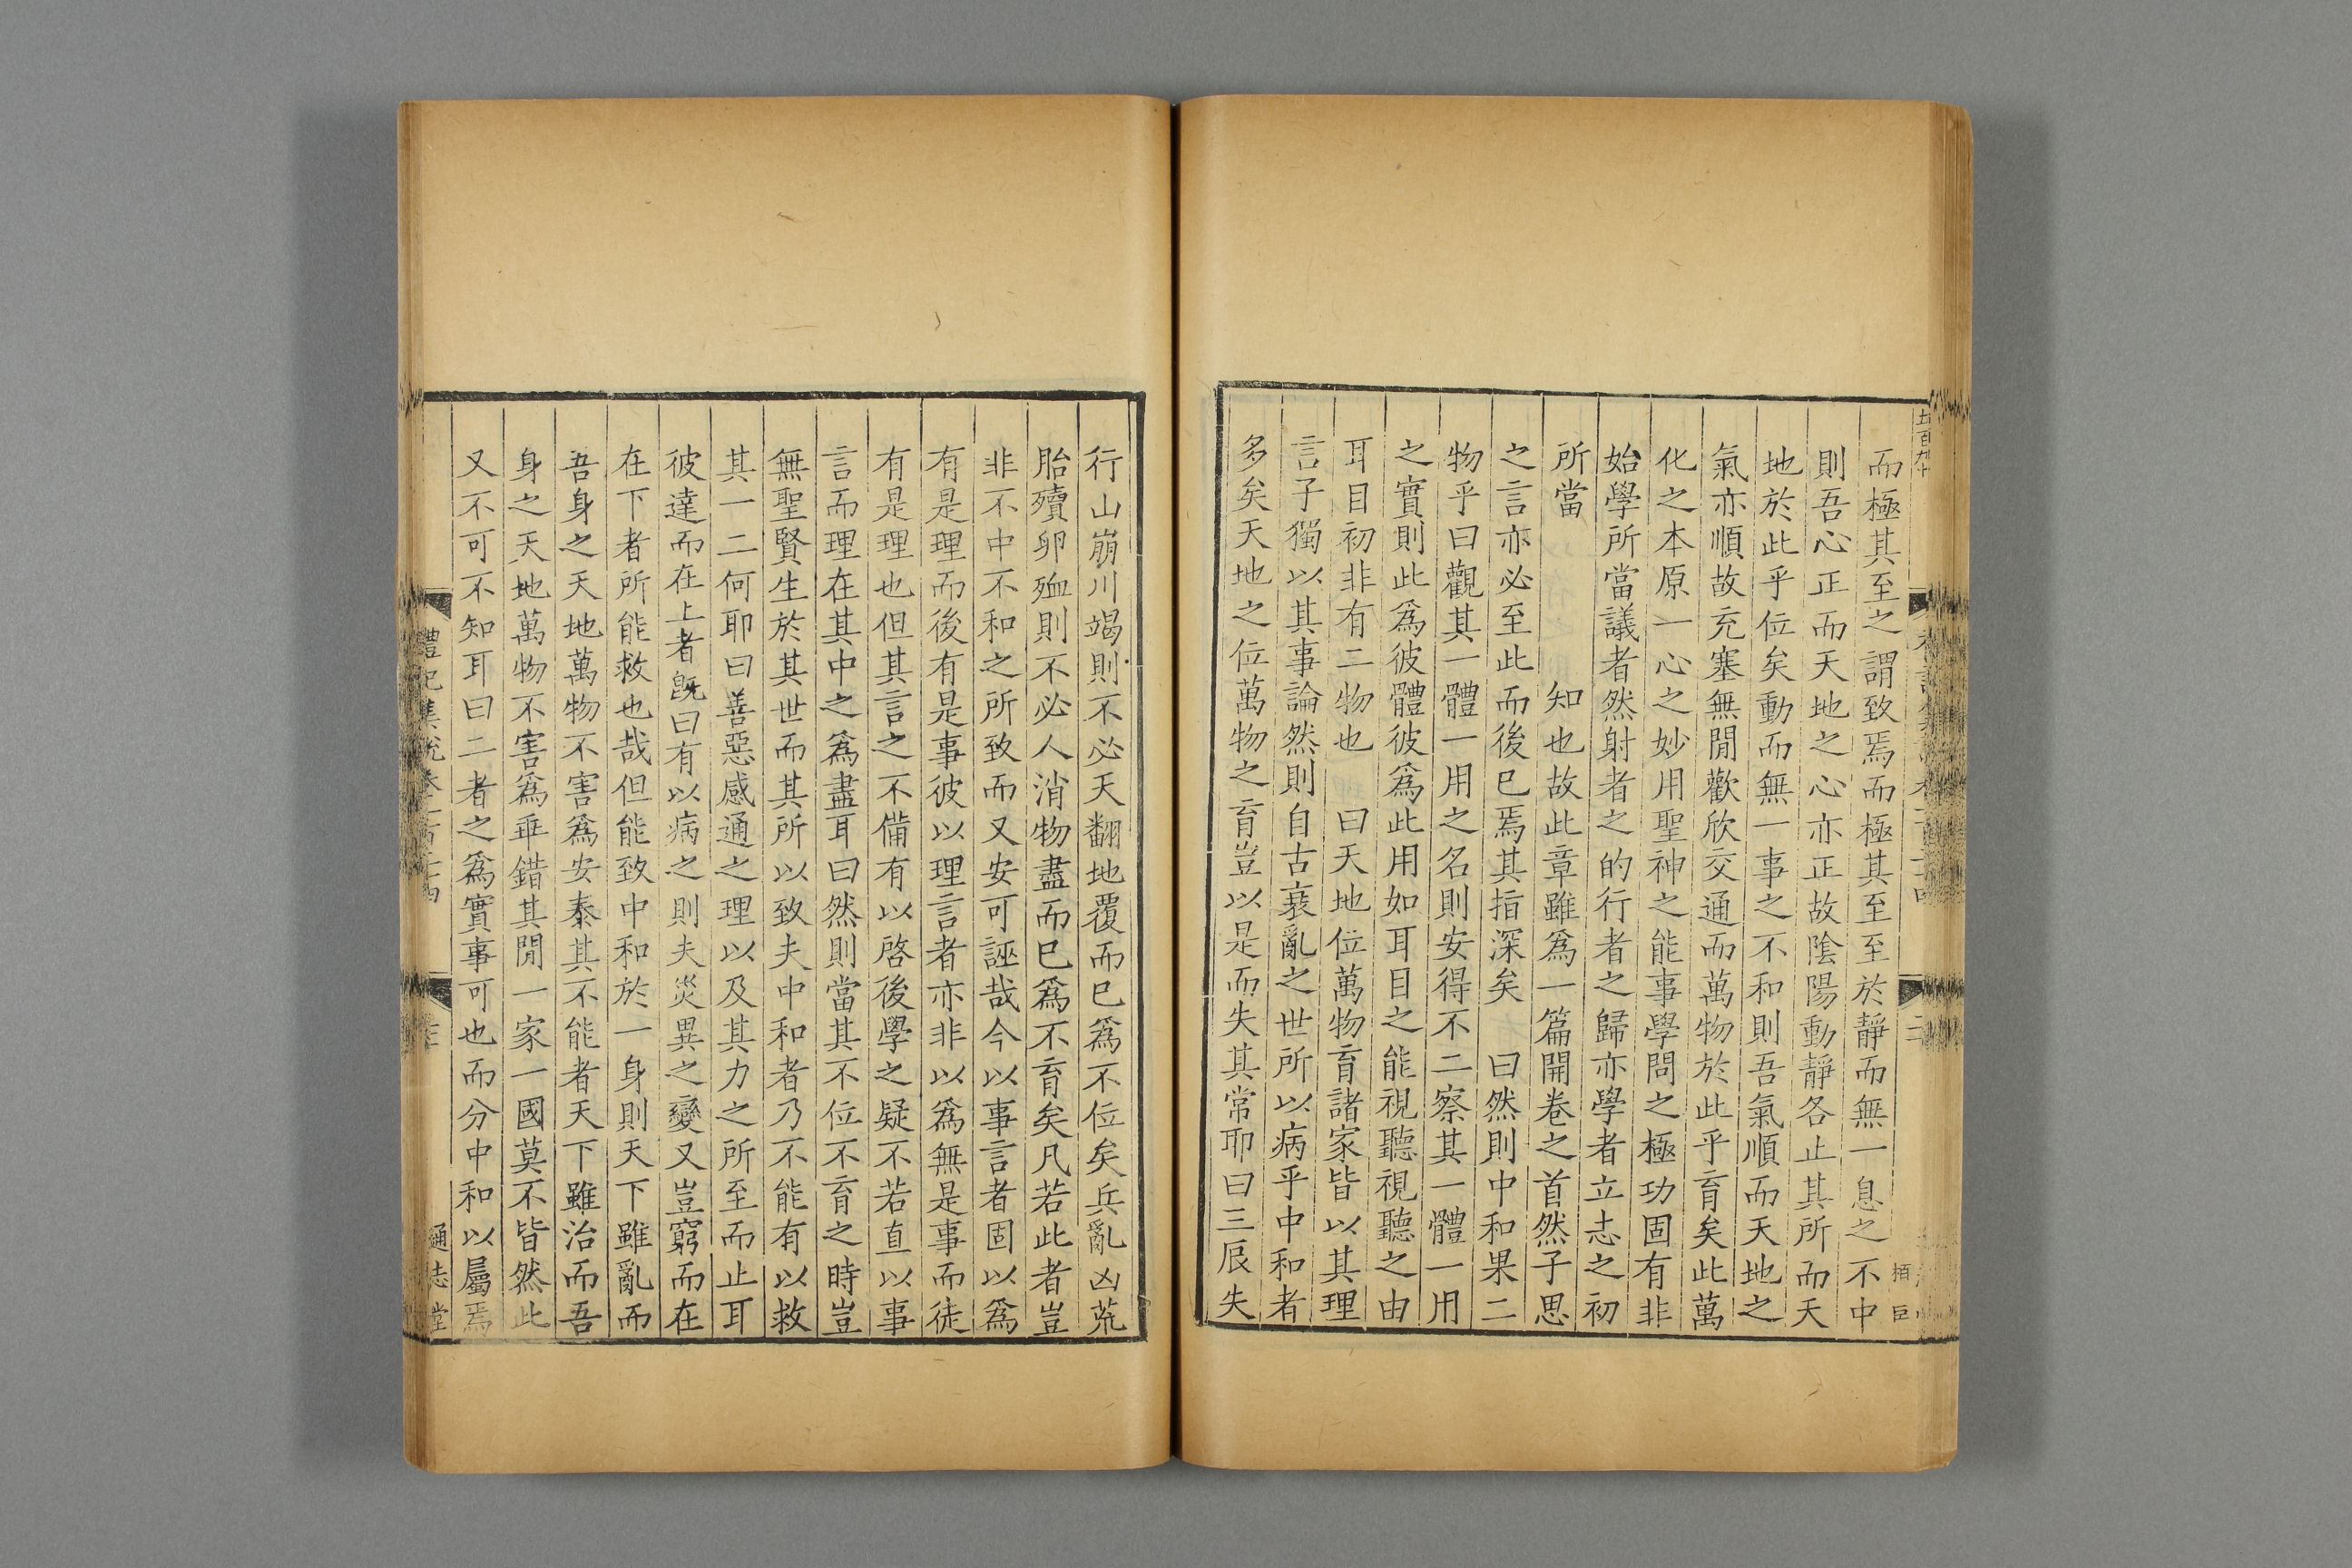 五百九十
而極其至之謂致焉而極其至至於靜而無一息之不中
則吾心正而天地之心亦正故陰陽動靜各止其所而天
地於此乎位矣動而無一事之不和則吾氣順而天地之
氣亦順故充塞無閒歡欣交通而萬物於此乎育矣此萬
化之本原一心之妙用聖神之能事學問之極功固有非
始學所當議者然射者之的行者之歸亦學者立志之初
所當 知也故此章雖爲一篇開卷之首然子思
之言亦必至此而後已焉其指深矣 曰然則中和果二
物乎曰觀其一體一用之名則安得不二察其一體一用
之實則此爲彼體彼爲此用如耳目之能視聽視聽之由
耳目初非有二物也 曰天地位萬物育諸家皆以其理
言子獨以其事論然則自古衰亂之世所以病乎中和者
多矣天地之位萬物之育豈以是而失其常耶曰三辰失
行山崩川竭則不必天翻地覆而已爲不位矣兵亂凶荒
胎殰卵殈則不必人消物盡而已爲不育矣凡若此者豈
非不中不和之所致而又安可誣哉今以事言者固以爲
有是理而後有是事彼以理言者亦非以爲無是事而徒
有是理也但其言之不備有以啓後學之疑不若直以事
言而理在其中之爲盡耳曰然則當其不位不育之時豈
無聖賢生於其世而其所以致夫中和者乃不能有以救
其一二何耶曰善惡感通之理以及其力之所至而止耳
彼達而在上者旣曰有以病之則夫災異之變又豈窮而在
在下者所能救也哉但能致中和於一身則天下雖亂而
吾身之天地萬物不害爲安泰其不能者天下雖治而吾
身之天地萬物不害爲乖錯其閒一家一國莫不皆然此
又不可不知耳曰二者之爲實事可也而分中和以屬焉
禮記集說卷一百二十四
通志堂